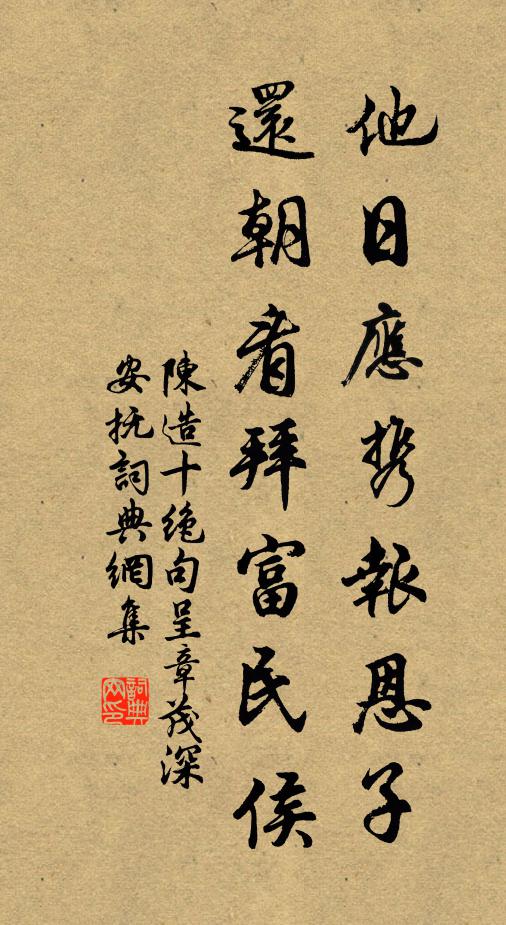 他日應携報恩子
還朝看拜富民侯
陳造十絶句呈章茂深
安撫詞典網集
詞典網印